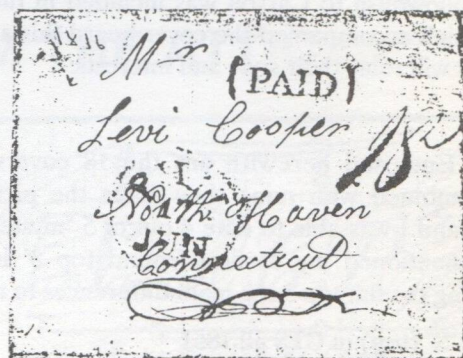 1816
Mr
(PAID)
Levi Cooper
North Haven
JUN
Connecticut